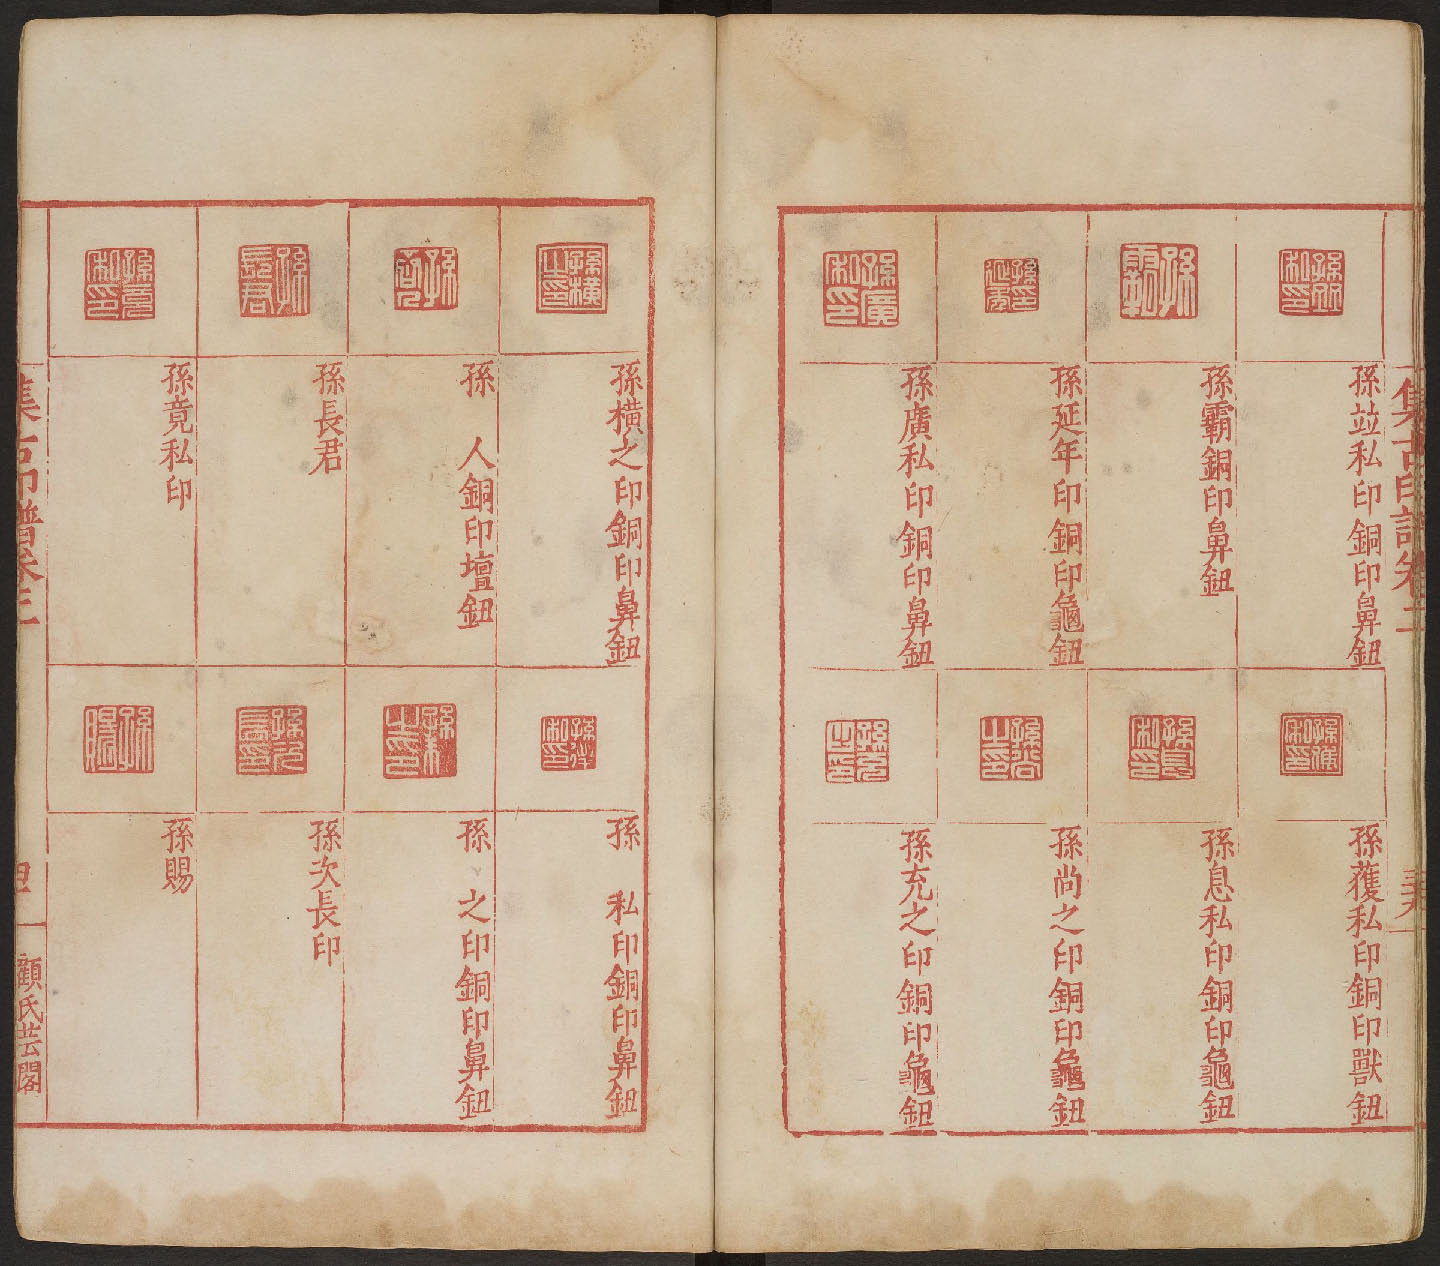 集古印譜卷三
孫竝私印銅印鼻鈕
孫霸銅印鼻鈕
孫延年印銅印龜鈕
孫廣私印銅印鼻鈕
孫蒦私印銅印獸鈕
孫息私印銅印龜鈕
孫尚之印銅印龜鈕
孫充之印銅印龜鈕
孫橫之印銅印鼻鈕
孫 人銅印壇鈕
孫長君
孫竟私印
孫 私印銅印鼻鈕
孫 之印銅印鼻鈕
孫次長印
孫賜
集古印譜卷三
顧氏芸閣